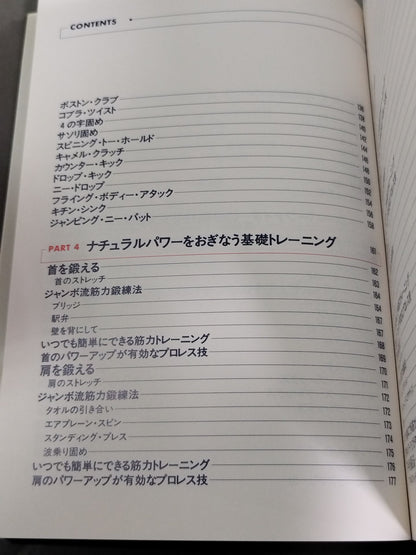 CONTENTS
ボストン・クラブ 136
コブラ・ツイスト 138
4の字固め 140
サソリ固め 142
スピニング・トー・ホールド 144
キャメル・クラッチ 146
カウンター・キック 148
ドロップ・キック 150
ニー・ドロップ 152
フライング・ボディー・アタック 154
キチン・シンク 156
ジャンピング・ニー・パット 158
PART 4 ナチュラルパワーをおぎなう基礎トレーニング 161
首を鍛える 162
首のストレッチ 162
ジャンボ流筋力鍛練法 164
ブリッジ 164
駅弁 165
壁を背にして 167
いつでも簡単にできる筋力トレーニング 168
首のパワーアップが有効なプロレス技 169
肩を鍛える 170
肩のストレッチ 171
ジャンボ流筋力鍛練法 172
タオルの引き合い 172
エアプレーン・スピン 173
スタンディング・プレス 174
波乗り固め 175
いつでも簡単にできる筋力トレーニング 176
肩のパワーアップが有効なプロレス技 177